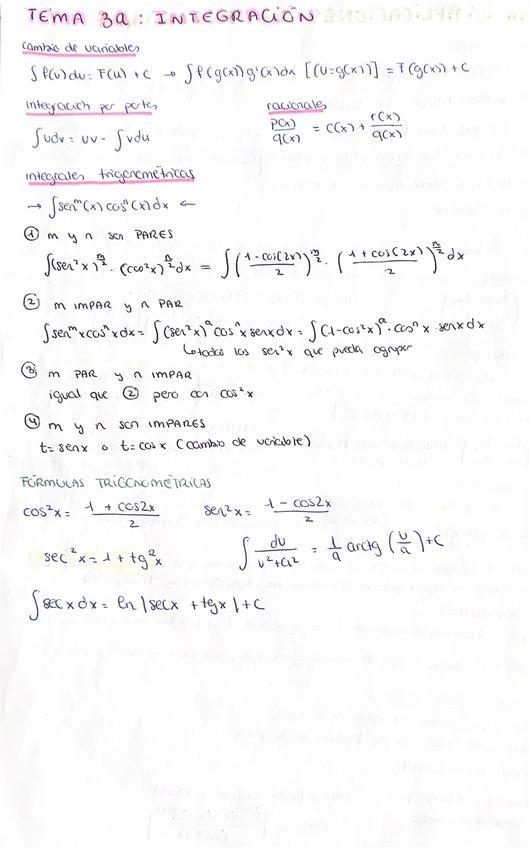 TEMA 3a: INTEGRACIÓN
Cambio de variables
∫f(u)du = F(u) + C → ∫f(g(x))g'(x)dx [(u=g(x))] = F(g(x)) + C
Integración por partes
∫udv = uv - ∫vdu
racionales
p(x)/q(x) = C(x) + r(x)/q(x)
integrales trigonométricas
→ ∫senᵐ(x)cosⁿ(x)dx ←
① m y n son PARES
∫(sen²x)^(m/2) · (cos²x)^(n/2) dx = ∫((1-cos(2x))/2)^(m/2) · ((1+cos(2x))/2)^(n/2) dx
② m IMPAR y n PAR
∫senᵐx cosⁿx dx = ∫(sen²x)ᵃ cosⁿx senx dx = ∫(1-cos²x)ᵃ · cosⁿx · senx dx
↳ todos los sen²x que pueda agrupar
③ m PAR y n IMPAR
igual que ② pero con cos²x
④ m y n son IMPARES
t=senx o t=cosx (cambio de variable)
FÓRMULAS TRIGONOMÉTRICAS
cos²x = (1 + cos2x)/2 sen²x = (1 - cos2x)/2
sec²x = 1 + tg²x ∫du/(u²+a²) = 1/a arctg (u/a) + C
∫secx dx = ln |secx + tgx| + C